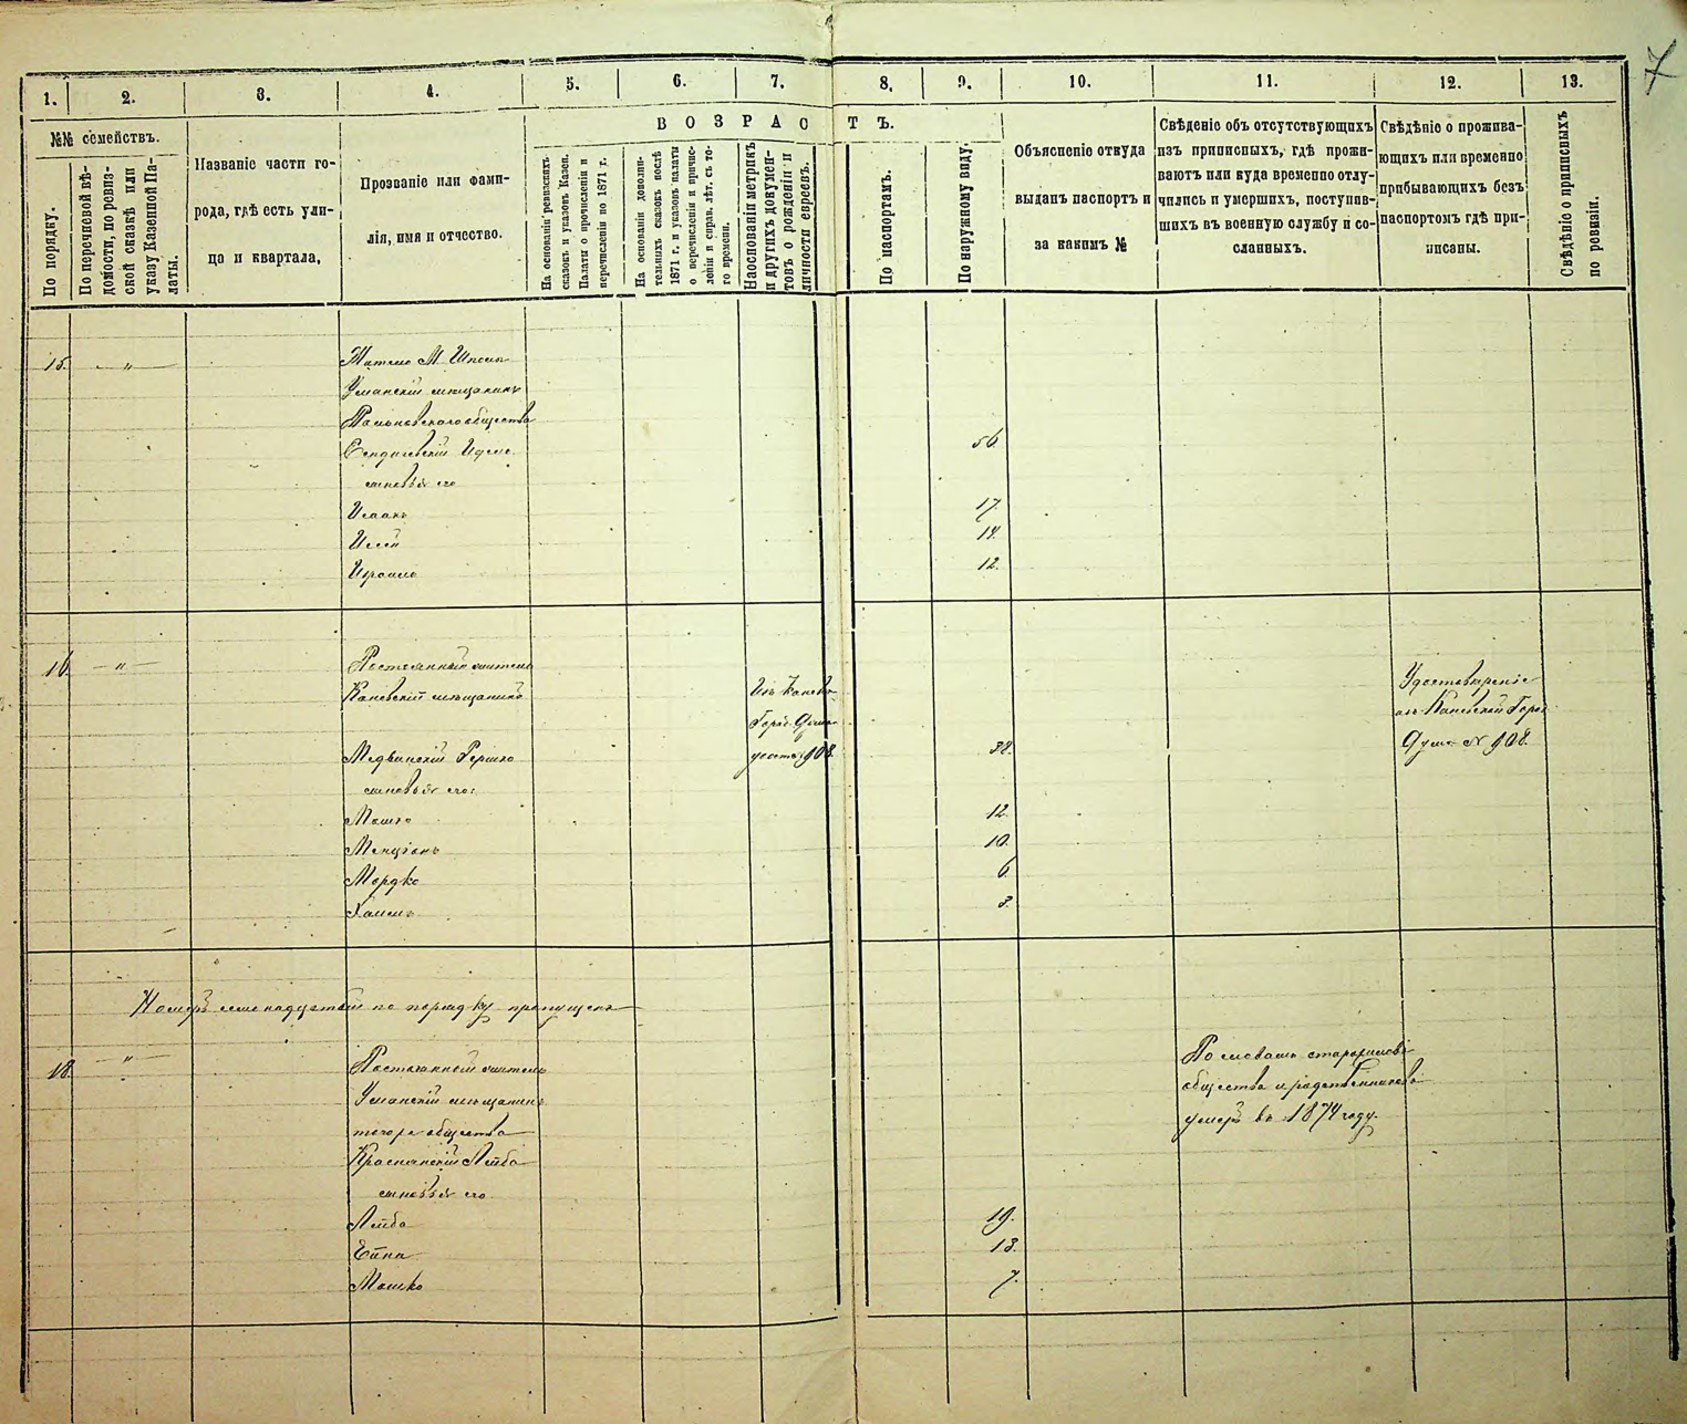 7
1. 2. 3. 4. 5. 6. 7. 8. 9. 10. 11. 12. 13.
№№ семействъ.
По порядку.
По перечневой вѣ-
домости, по ревиз-
ской сказкѣ или
указу Казенной Па-
латы.
Названіе части го-
рода, гдѣ есть ули-
ца и квартала,
Прозваніе или фами-
лія, имя и отчество.
ВОЗРАСТЪ.
На основаніи ревизскихъ
сказокъ и указовъ Казен.
Палаты о причисленіи и
перечисленіи по 1871 г.
На основаніи дополни-
тельныхъ сказокъ послѣ
1871 г. и указовъ палаты
о перечисленіи и причис-
леніи и справ. лѣт. съ то-
го времени.
Наоснованіи метрикъ
и другихъ докумен-
товъ о рожденіи и
личности евреевъ.
По паспортамъ.
По наружному виду.
Объясненіе откуда
выданъ паспортъ и
за какимъ №
Свѣденіе объ отсутствующихъ
изъ приписныхъ, гдѣ прожи-
ваютъ или куда временно отлу-
чились и умершихъ, поступив-
шихъ въ военную службу и со-
сланныхъ.
Свѣдѣніе о прожива-
ющихъ или временно
прибывающихъ безъ
паспортомъ гдѣ при-
писаны.
Свѣдѣніе о приписныхъ
по ревизіи.
15. "
Уманскій мѣщанинъ
общества
56.
сыновья его
Исаакъ 17.
14.
Израиль 12.
16. " Постоянный житель
Каневскій мѣщанинъ
Удостовѣреніе
изъ Каневской Город
Думы № 908.
Медвинскій Гершко 38.
сыновья его:
Мошко 12.
Менціонъ 10.
Мордко 6.
Хаимъ 3.
Номеръ семнадцатый по порядку пропущенъ
18. " Постоянный житель
Уманскій мѣщанинъ
общества
Краснянскій Лейба
По словамъ
общества и родственниковъ
умеръ въ 1874 году.
сыновья его
Лейба 19.
13.
Мошко 7.